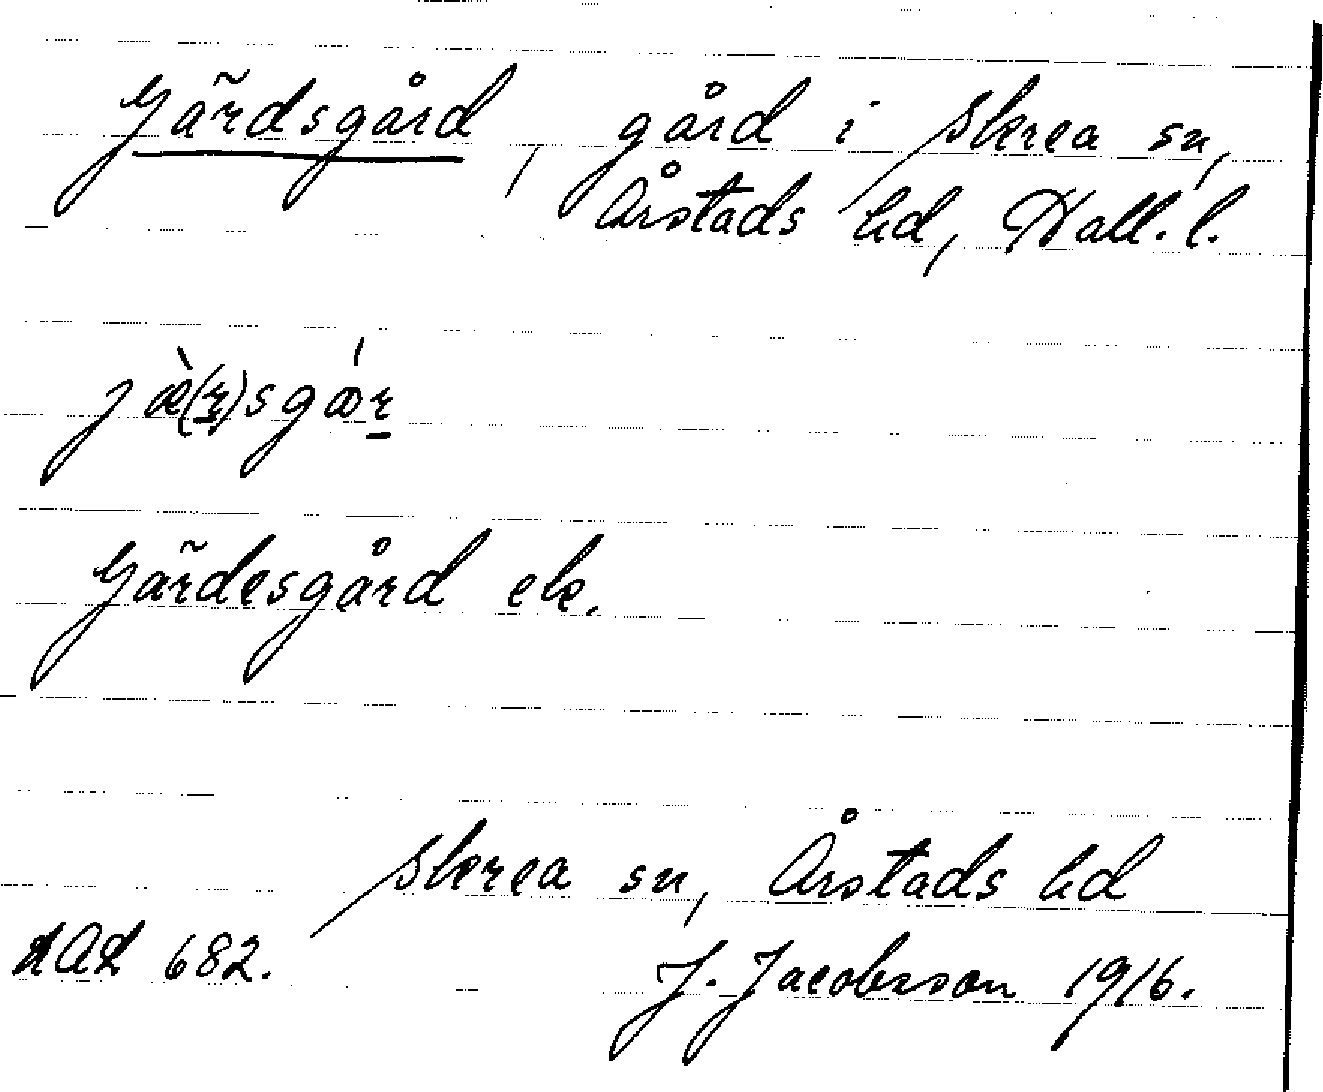 Gärdsgård, gård i Skrea sn,
Årstads hd, Hall. l.
jæ̀(r)sgǿr
Gärdesgård ek.
Skrea sn, Årstads hd
682.
J. Jacobsson 1916.